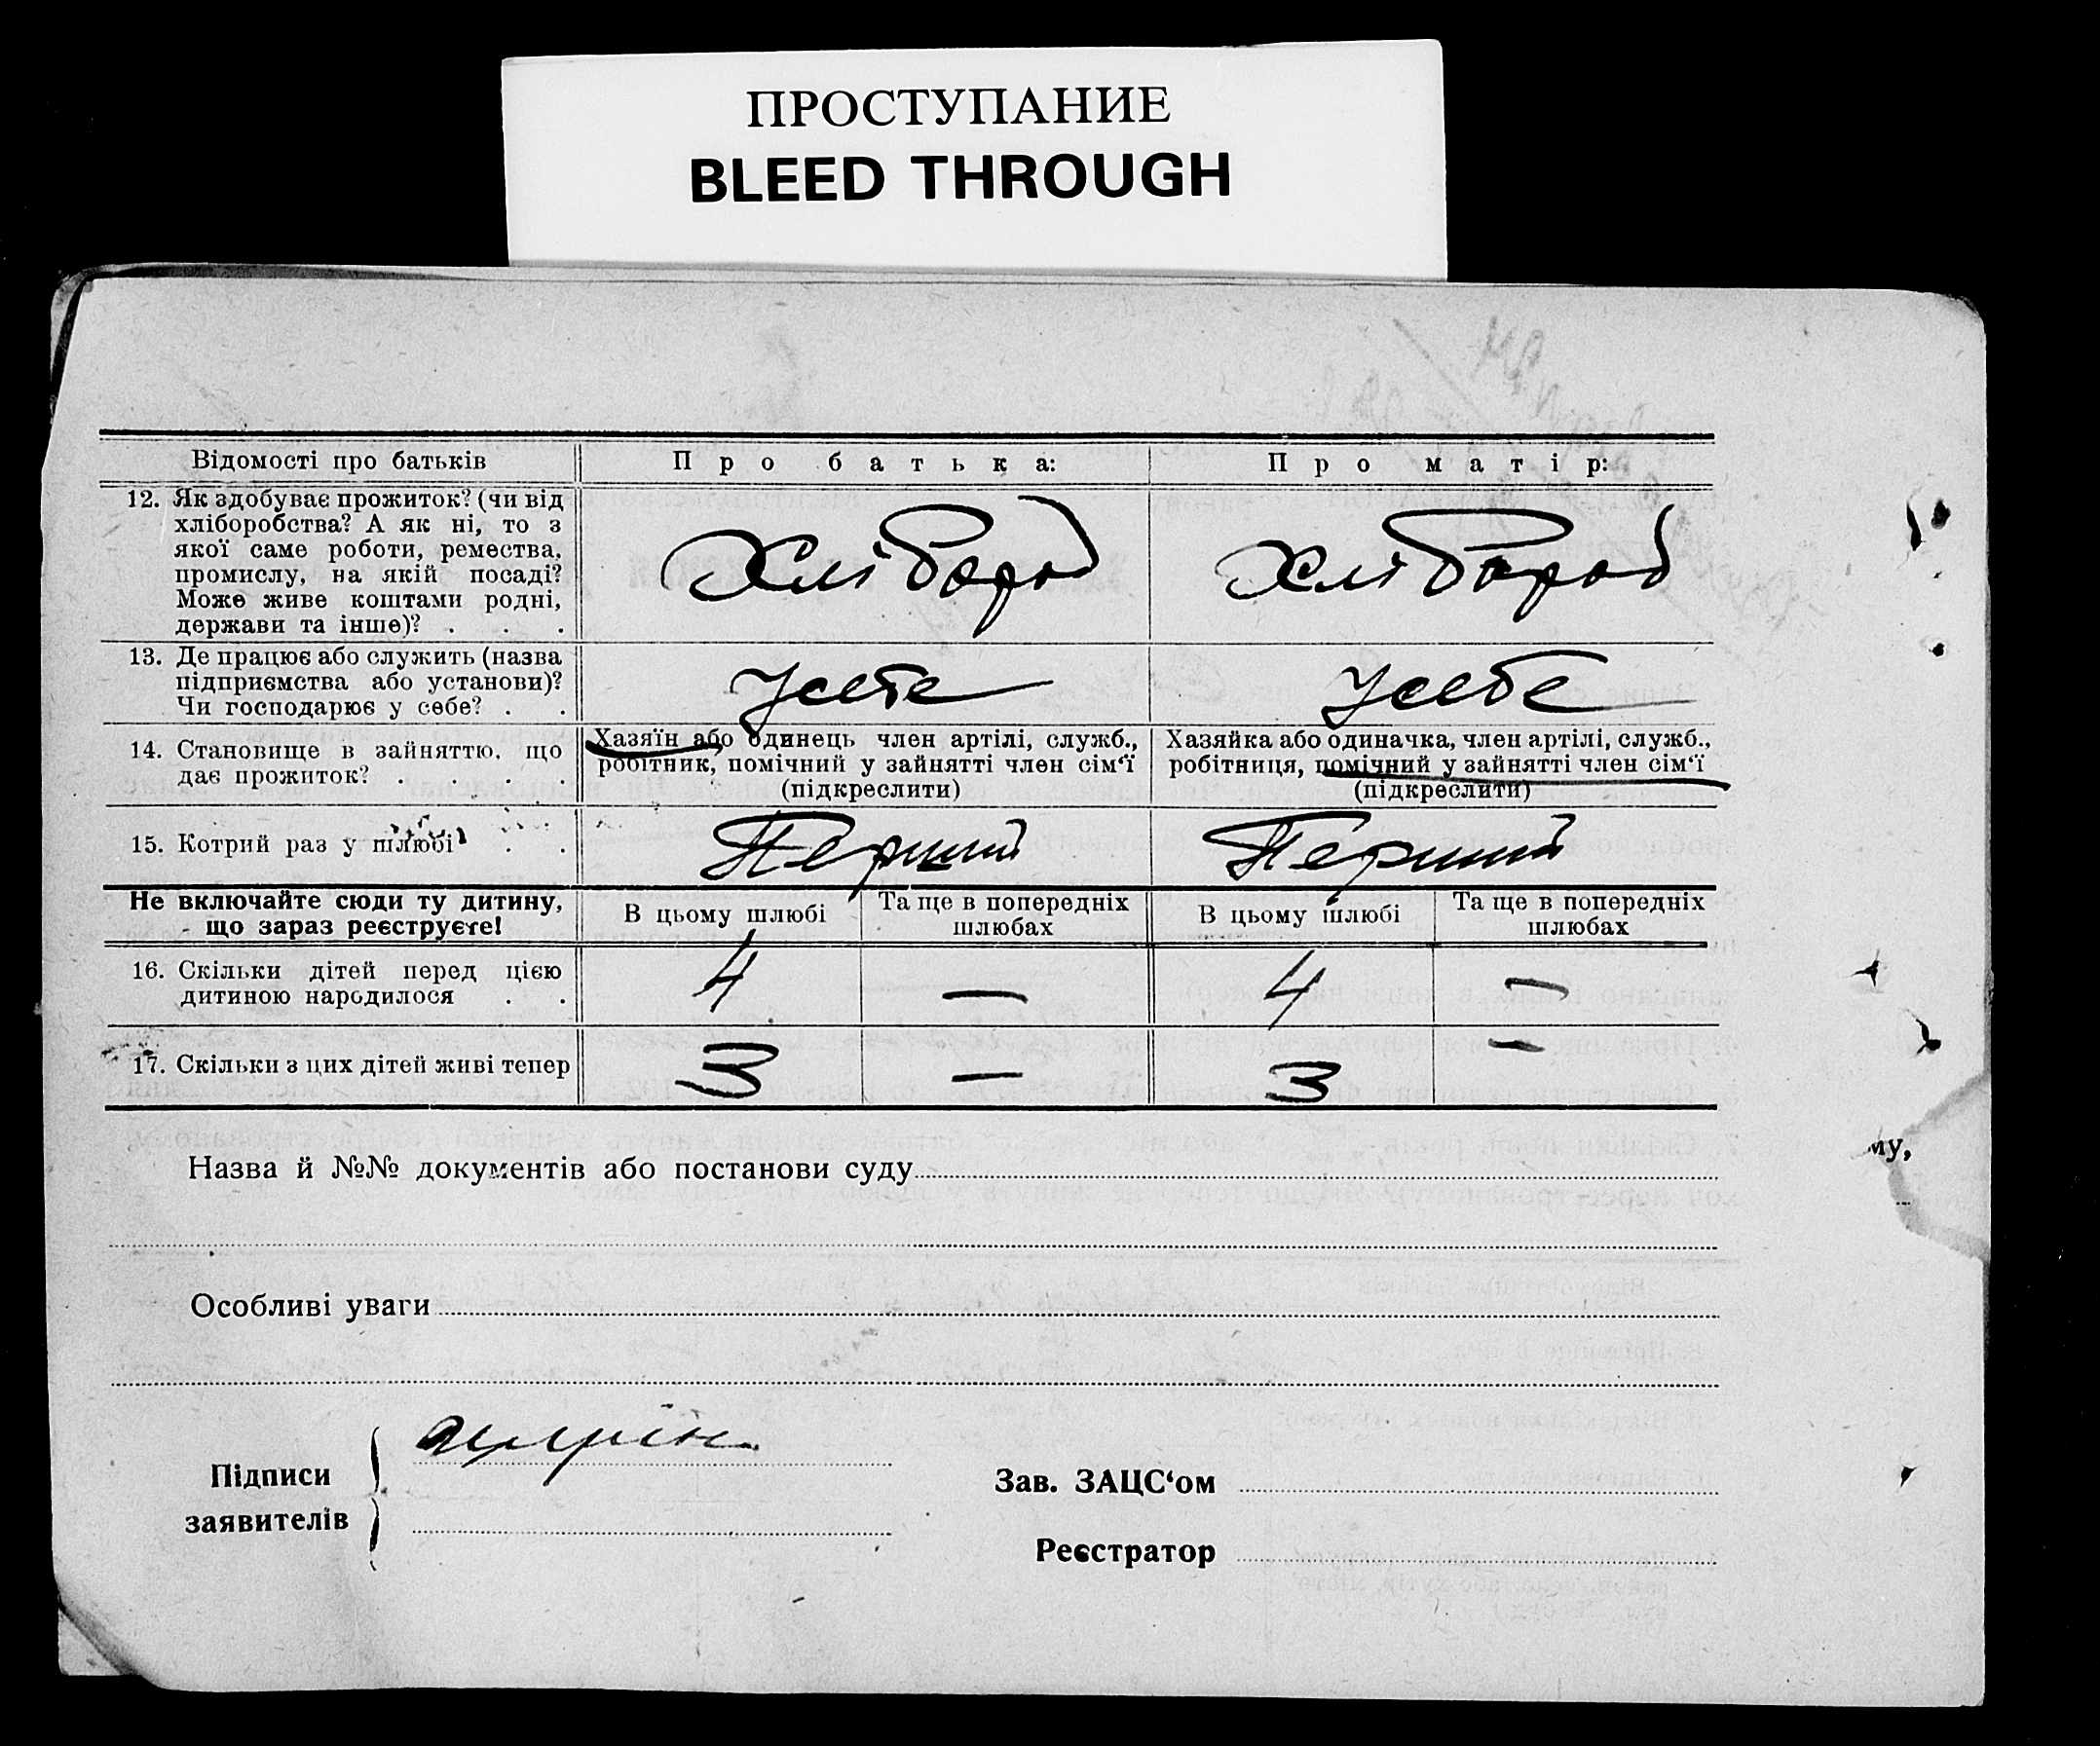 ПРОСТУПАНИЕ
BLEED THROUGH
Відомості про батьків
Про батька:
Про матір:
12. Як здобуває прожиток? (чи від
хліборобства? А як ні, то з
якої саме роботи, ремества,
промислу, на якій посаді?
Може живе коштами родні,
держави та інше)? . . .
Хлібороб
Хлібороб
13. Де працює або служить (назва
підприємства або установи)?
Чи господарює у себе? . .
Усебе
Усебе
14. Становище в зайняттю, що
дає прожиток? . . . .
Хазяїн або одинець член артілі, служб.,
робітник, помічний у зайнятті член сім‘ї
(підкреслити)
Хазяйка або одиначка, член артілі, служб.,
робітниця, помічний у зайнятті член сім‘ї
(підкреслити)
15. Котрий раз у шлюбі . .
Перший
Перший
Не включайте сюди ту дитину,
що зараз реєструєте!
В цьому шлюбі
Та ще в попередніх
шлюбах
В цьому шлюбі
Та ще в попередніх
шлюбах
16. Скільки дітей перед цією
дитиною народилося . .
4
—
4
—
17. Скільки з цих дітей живі тепер
3
—
3
—
му,
Назва й №№ документів або постанови суду
Особливі уваги
Підписи
заявителів
Зав. ЗАЦС‘ом
Реєстратор